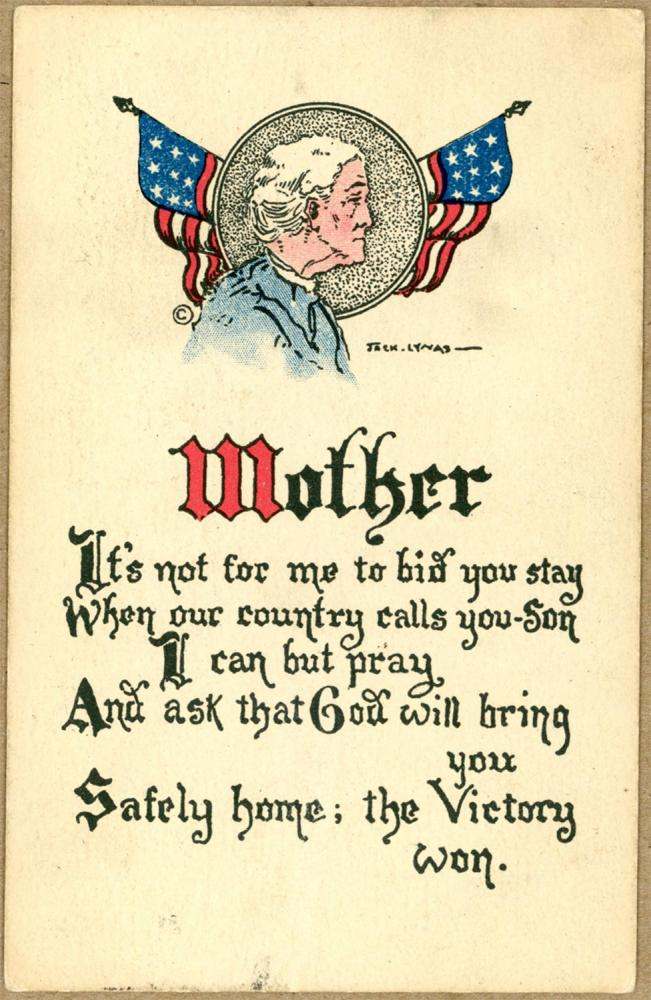 ©
JACK.LYNAS
Mother
It's not for me to bid you stay
When our country calls you-Son
I can but pray
And ask that God will bring
you
Safely home; the Victory
won.